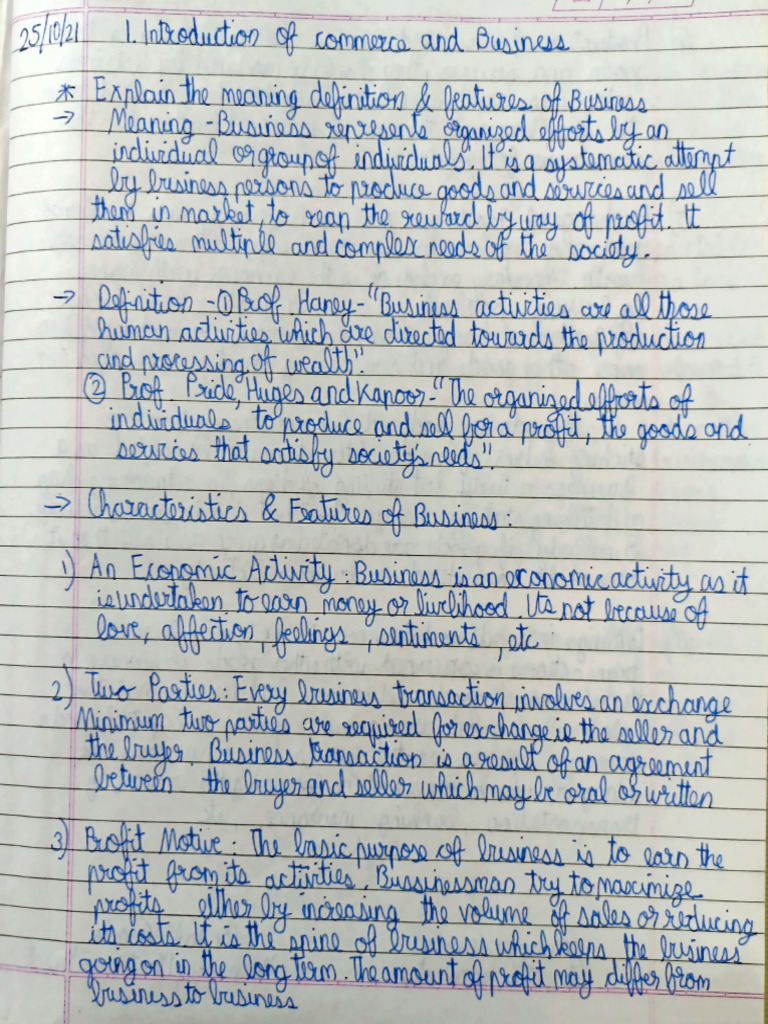 25/10/21 1. Introduction of commerce and Business
* Explain the meaning definition & features of Business
→ Meaning - Business represents organized efforts by an
individual or group of individuals. It is a systematic attempt
by business persons to produce goods and services and sell
them in market, to reap the reward by way of profit. It
satisfies multiple and complex needs of the society.
→ Definition - ① Prof. Haney - "Business activities are all those
human activities which are directed towards the production
and processing of wealth".
② Prof. Pride, Huges and Kapoor - "The organized efforts of
individuals to produce and sell for a profit, the goods and
services that satisfy society's needs".
→ Characteristics & Features of Business :
1) An Economic Activity : Business is an economic activity as it
is undertaken to earn money or livelihood. Its not because of
love, affection, feelings, sentiments, etc
2) Two Parties : Every business transaction involves an exchange
Minimum two parties are required for exchange ie the seller and
the buyer. Business transaction is a result of an agreement
between the buyer and seller which may be oral or written
3) Profit Motive : The basic purpose of business is to earn the
profit from its activities. Bussinessman try to maximize
profits either by increasing the volume of sales or reducing
its costs. It is the spine of business which keeps the business
going on in the long term. The amount of profit may differ from
business to business